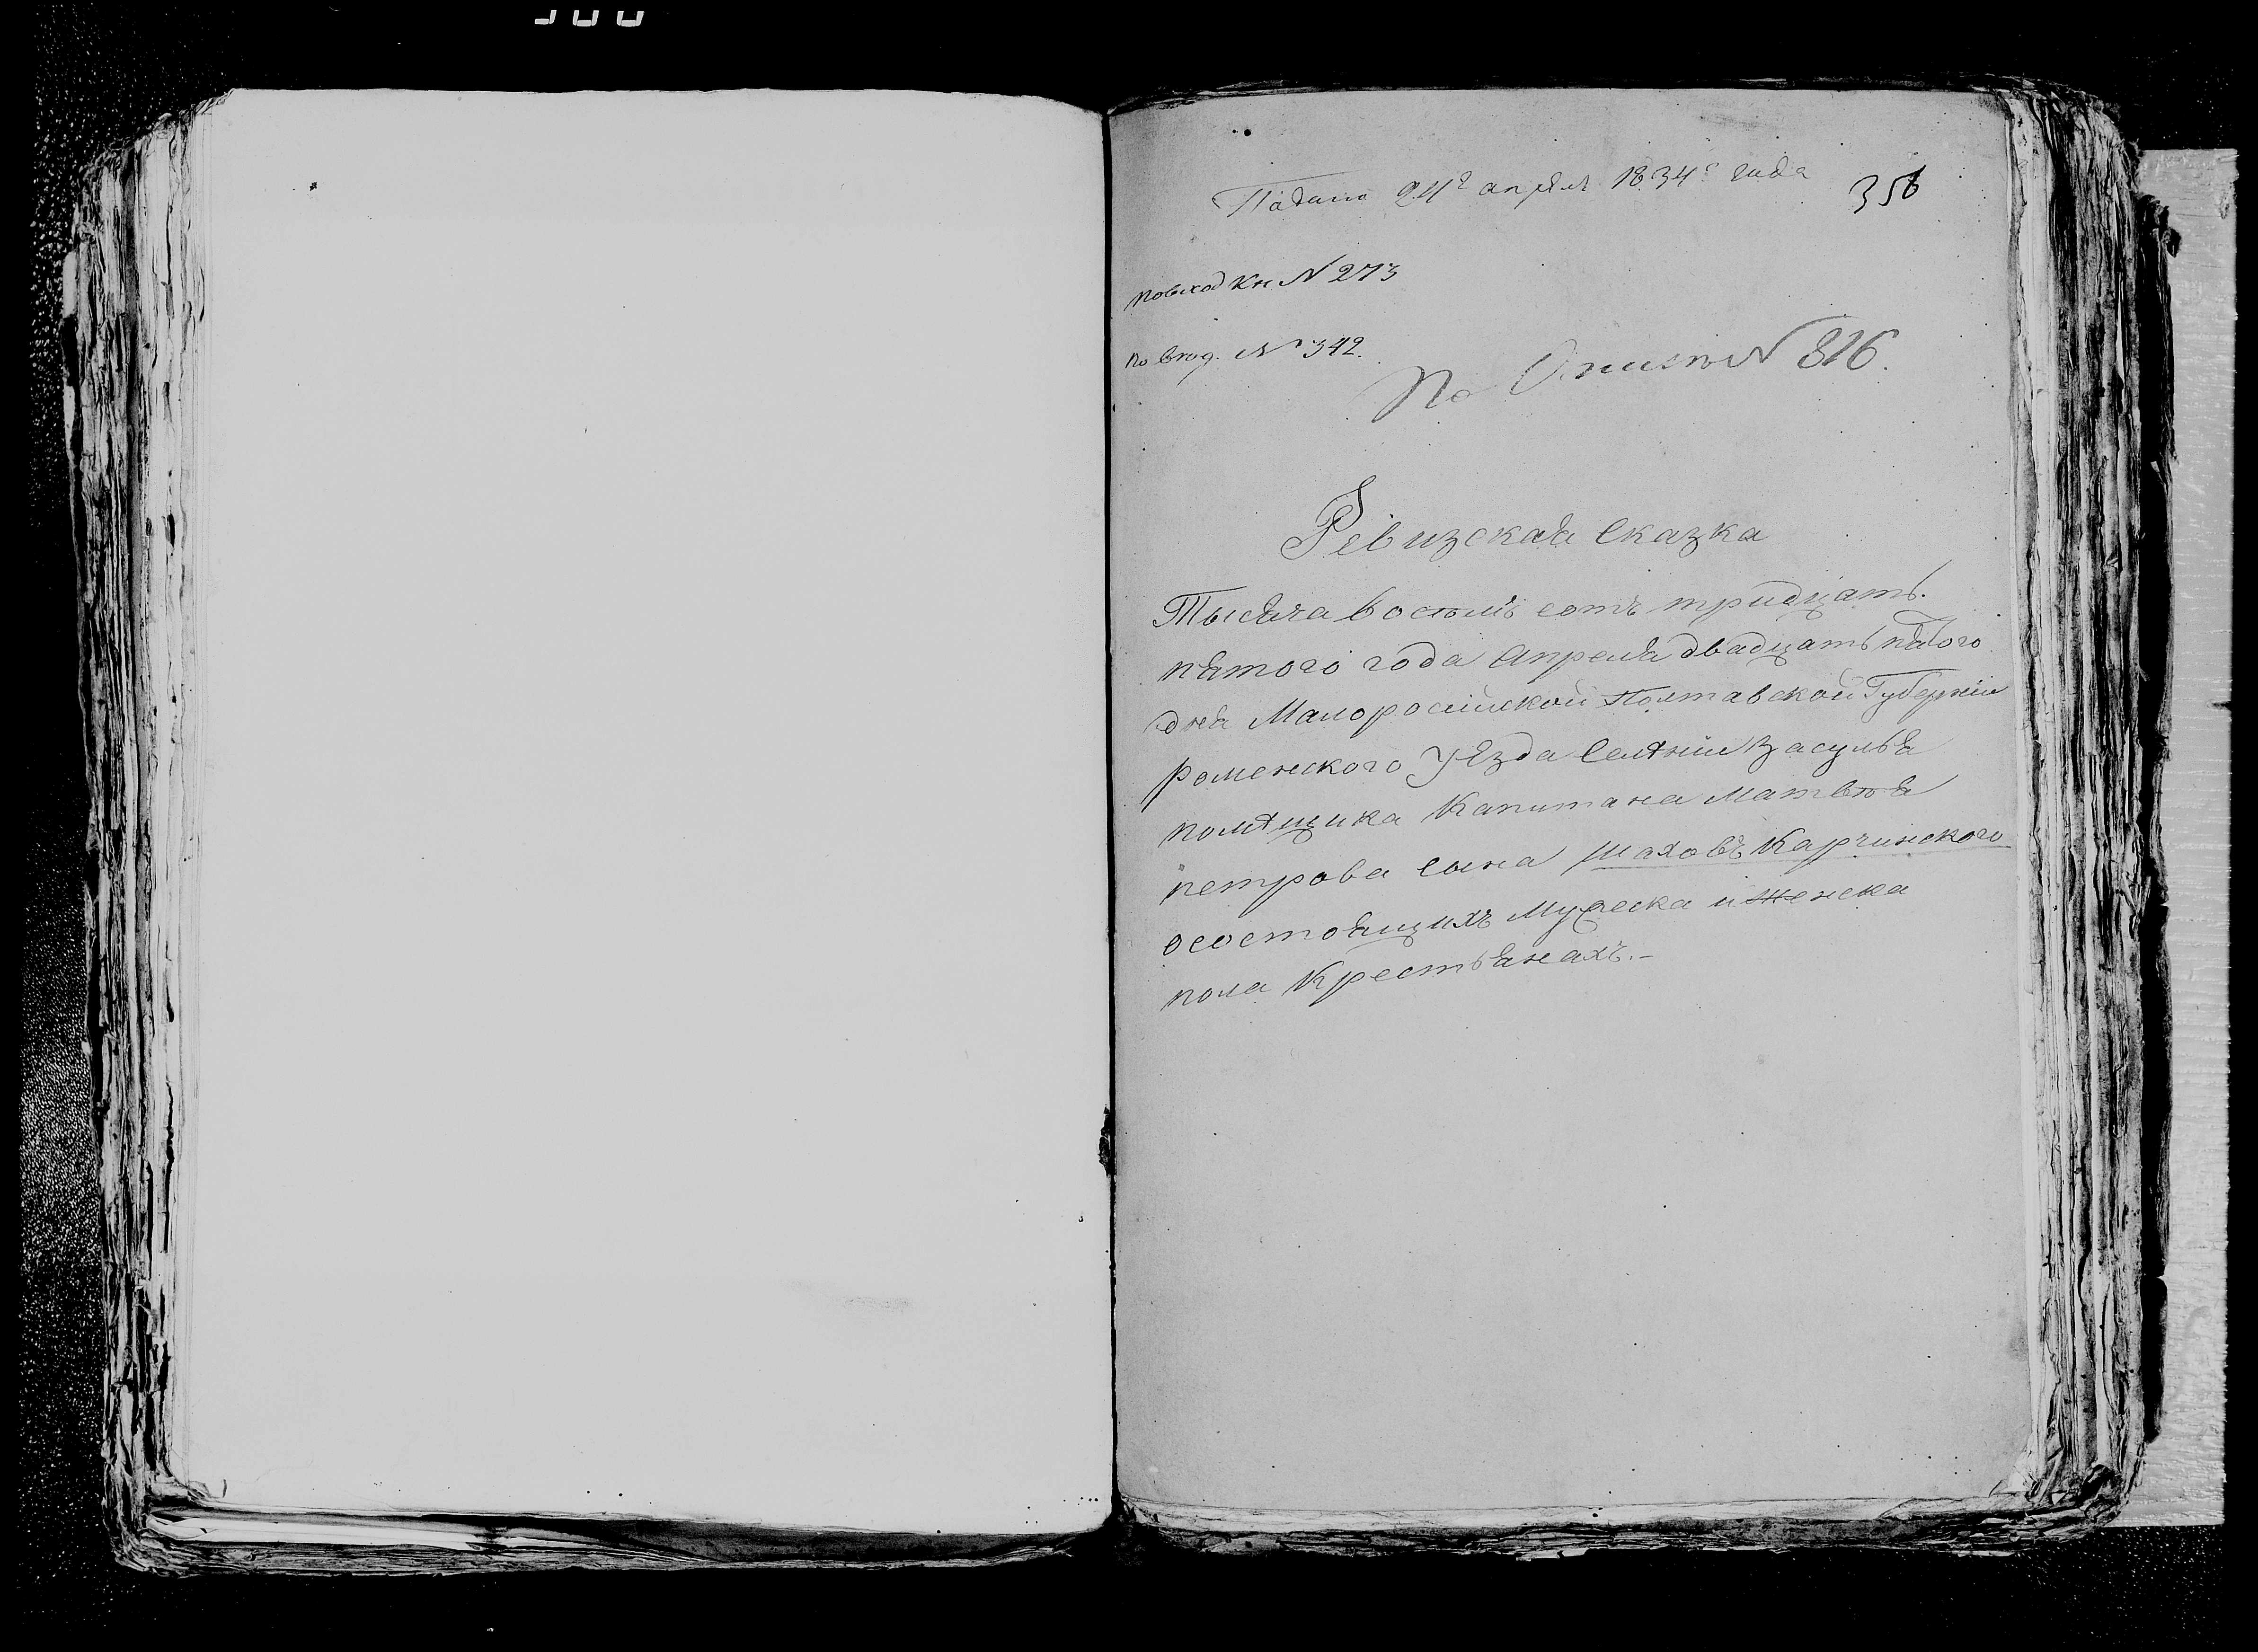 Подано 24г апреля 1834г года
356
по вход Кн. N 273
по вход. N 342.
По Описи N 816.
Ревизская Сказка
Тысяча восемъ сотъ тридцать.
пятого года Апреля двадцать пятого
дня Малоросийской Полтавской Губернии
роменского Уѣзда Селѣнии Засулья
помѣщика Капитана Матвѣя
петрова сына Шаховъ Карчинского
осостоящихъ Мужеска и женска
пола Крестьянахъ.-